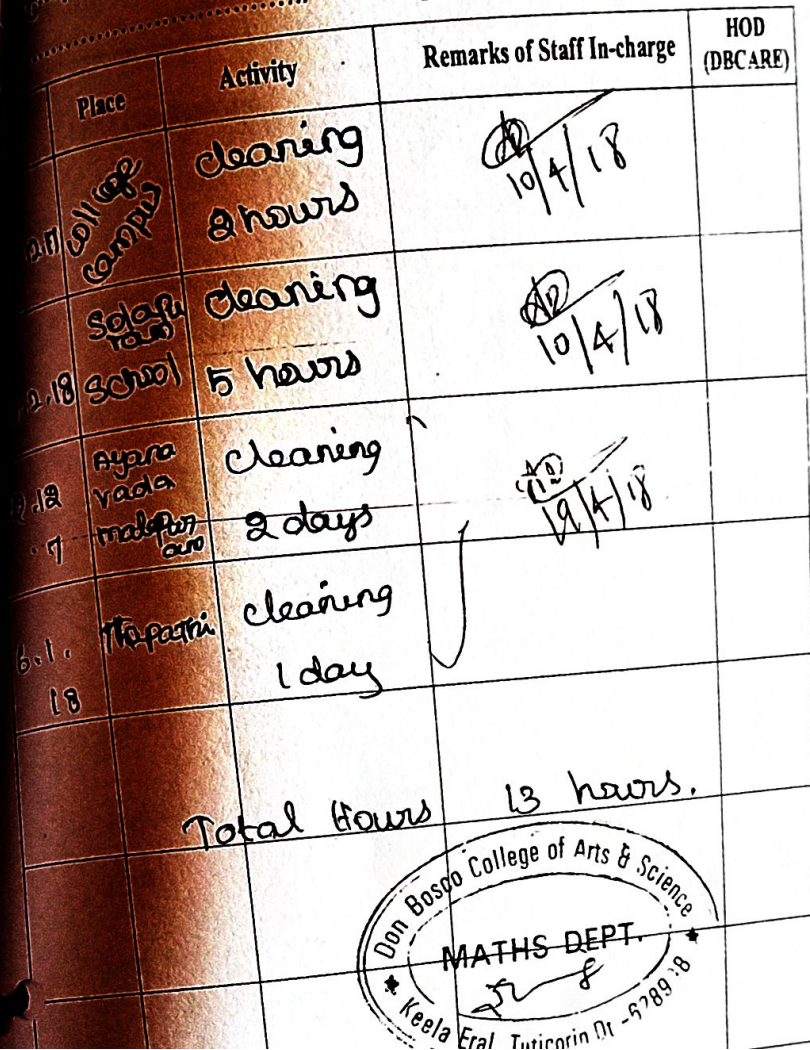 Place Activity Remarks of Staff In-charge HOD
(DBCARE)
college
campus
cleaning
2 hours
10/4/18
2.18
School
cleaning
5 hours
10/4/18
Ayana
vada
cleaning
2 days
19/4/18
6.1.
18
cleaning
1 day
Total Hours 13 hours.
Don Bosco College of Arts & Science
MATHS DEPT.
Keela Eral, Tuticorin Dt -